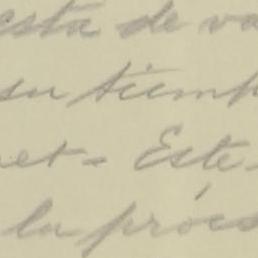 esta de va
su tiemp
net - Este
la próes